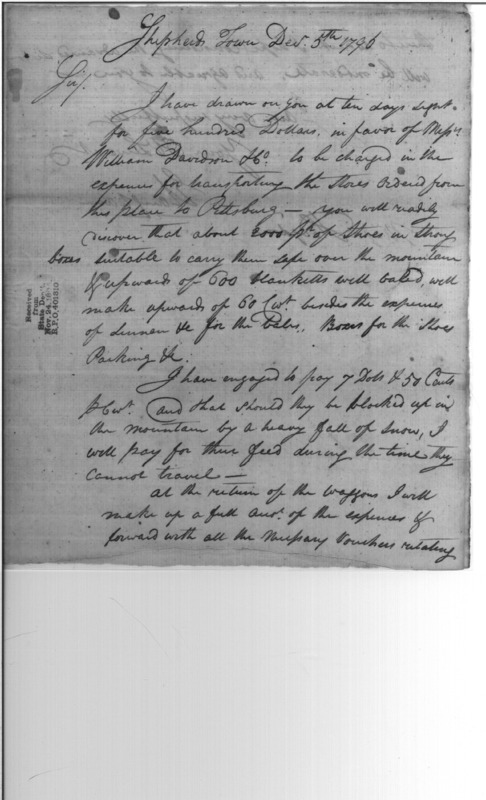 Shepherds Town Decr. 5th 1796
Sir,
I have drawn on you at ten days sight
for five hundred Dollars, in favor of Messrs
William Davidson & Co. to be charged in the
expences for transporting the Stores ordered from
this place to Pitsburg — you will readily
discover that about 2000 pr. of Shoes in Strong
boxes suitable to carry them safe over the mountain
& upwards of 600 blanketts well baled, will
make upwards of 60 Cwt. besides the expences
of linnen &c for the Bales, Boxes for the Shoes
Packing &c.
I have engaged to pay 7 Dolls & 50 Cents
P Cwt. and that should they be blocked up in
the mountain by a heavy fall of snow, I
will pay for their feed during the time they
cannot travel —
at the return of the waggons I will
make up a full Acct. of the expences &
forward with all the Necessary Vouchers relating
Received
from
State Dept.
Nov. 24
R.P.O. 401210